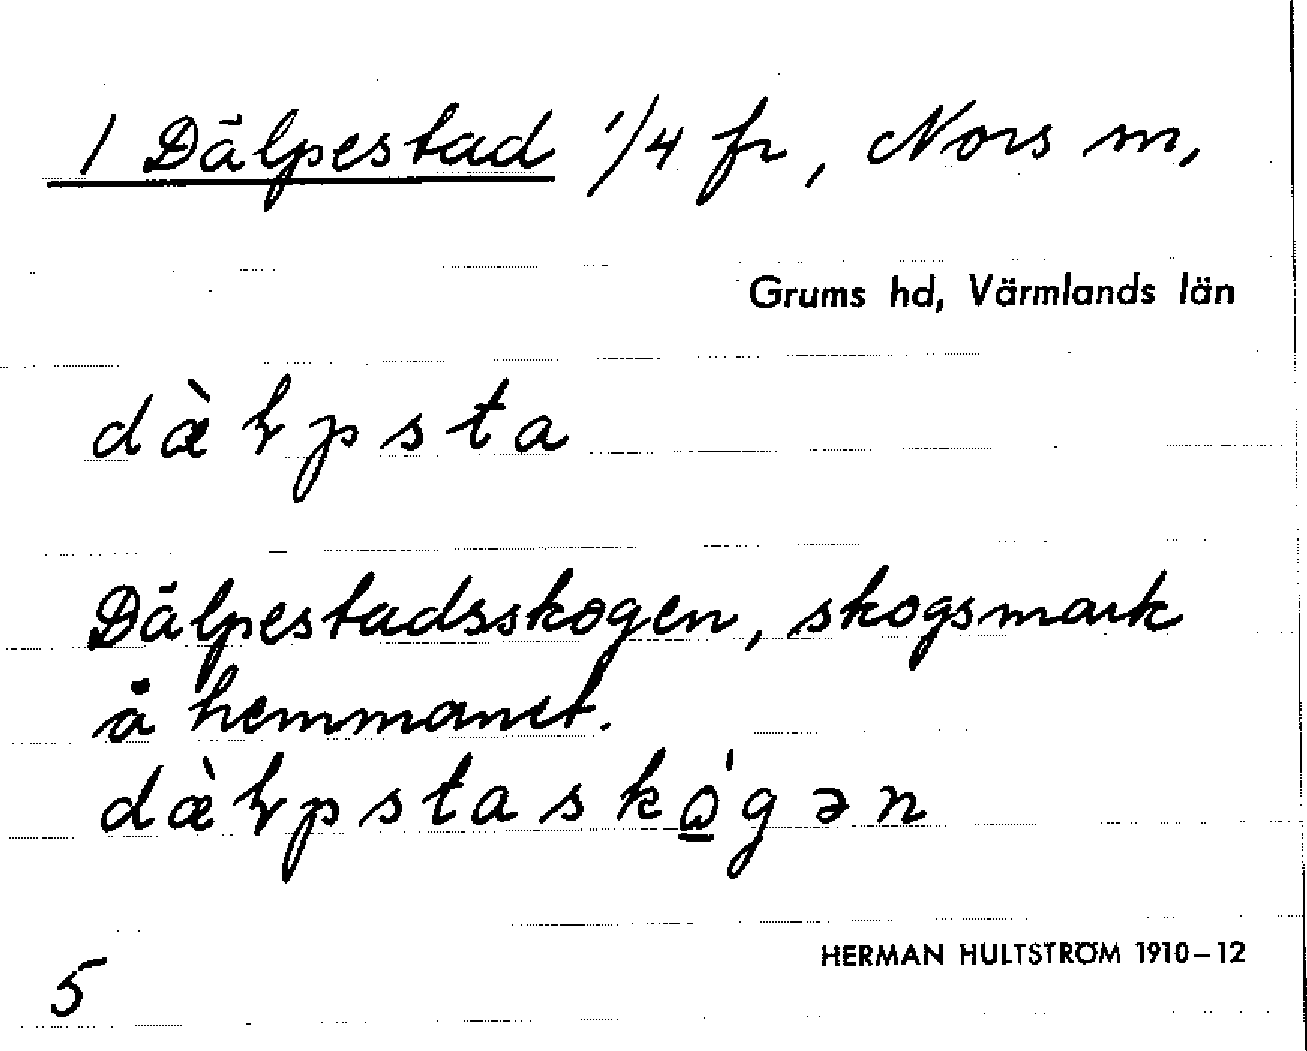 1 Dälpestad 1/4 fr, Nors sn,
Grums hd, Värmlands län
dæ̀ɽpsta
Dälpestadsskogen, skogsmark
å hemmanet.
dæ̀ɽpstaskó̱gən
HERMAN HULTSTRÖM 1910-12
5